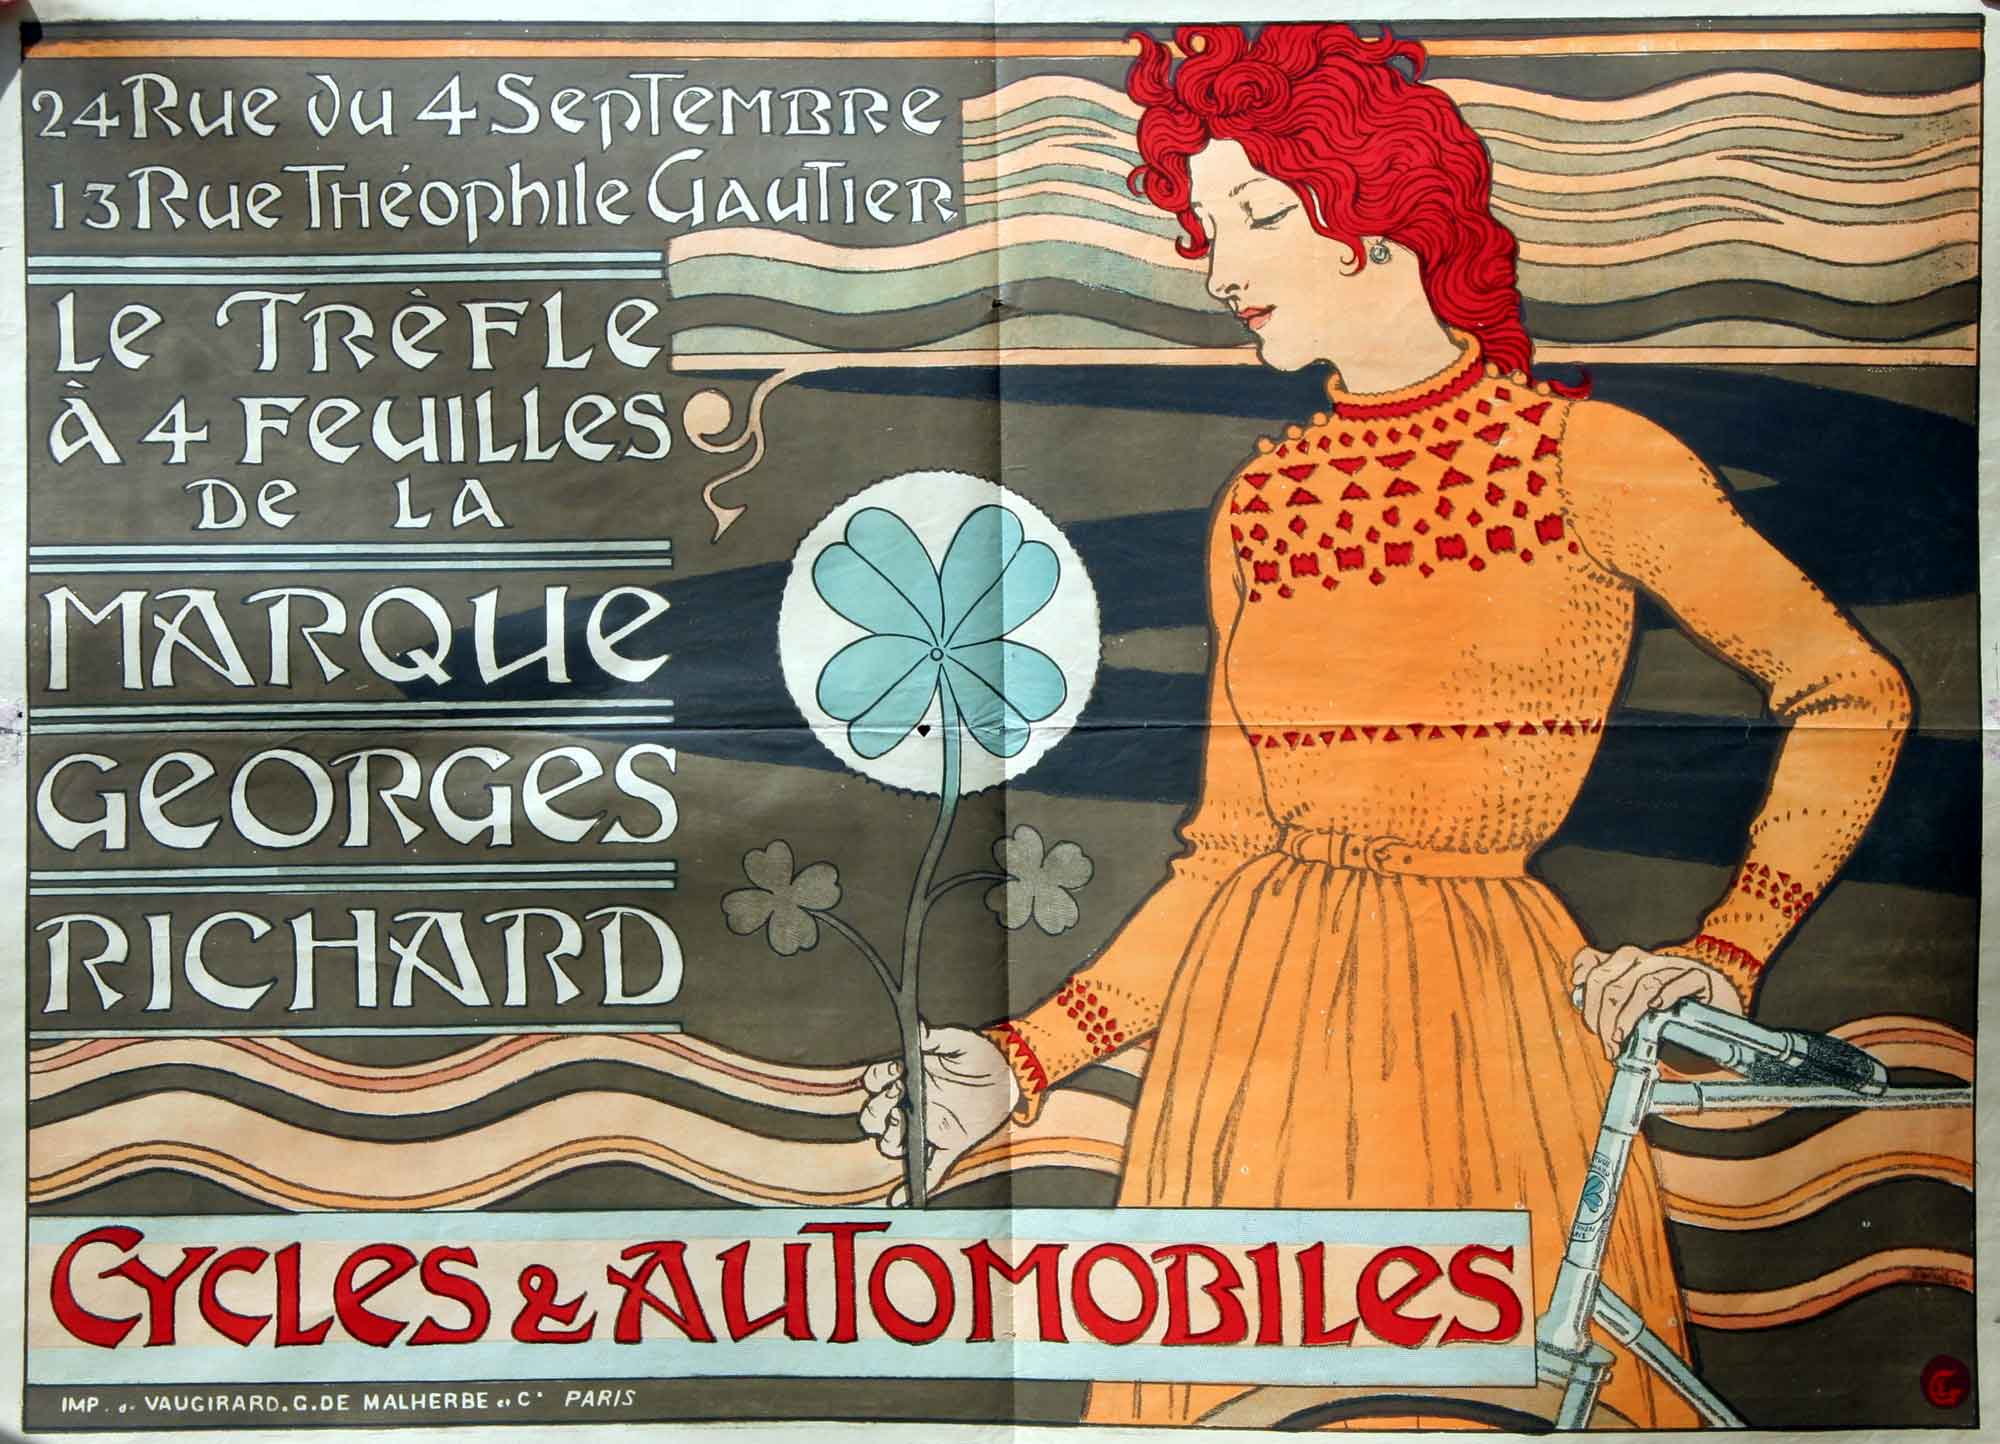 24 Rue du 4 Septembre
13 Rue Théophile Gautier
Le Trèfle
à 4 Feuilles
de la
Marque
Georges
Richard
Cycles & Automobiles
IMP. de VAUGIRARD. G. DE MALHERBE et Cie PARIS